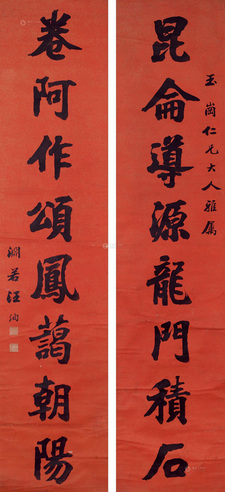 玉崗仁兄大人雅屬
昆侖導源龍門積石
卷阿作頌鳳藹朝陽
澗若汪洵